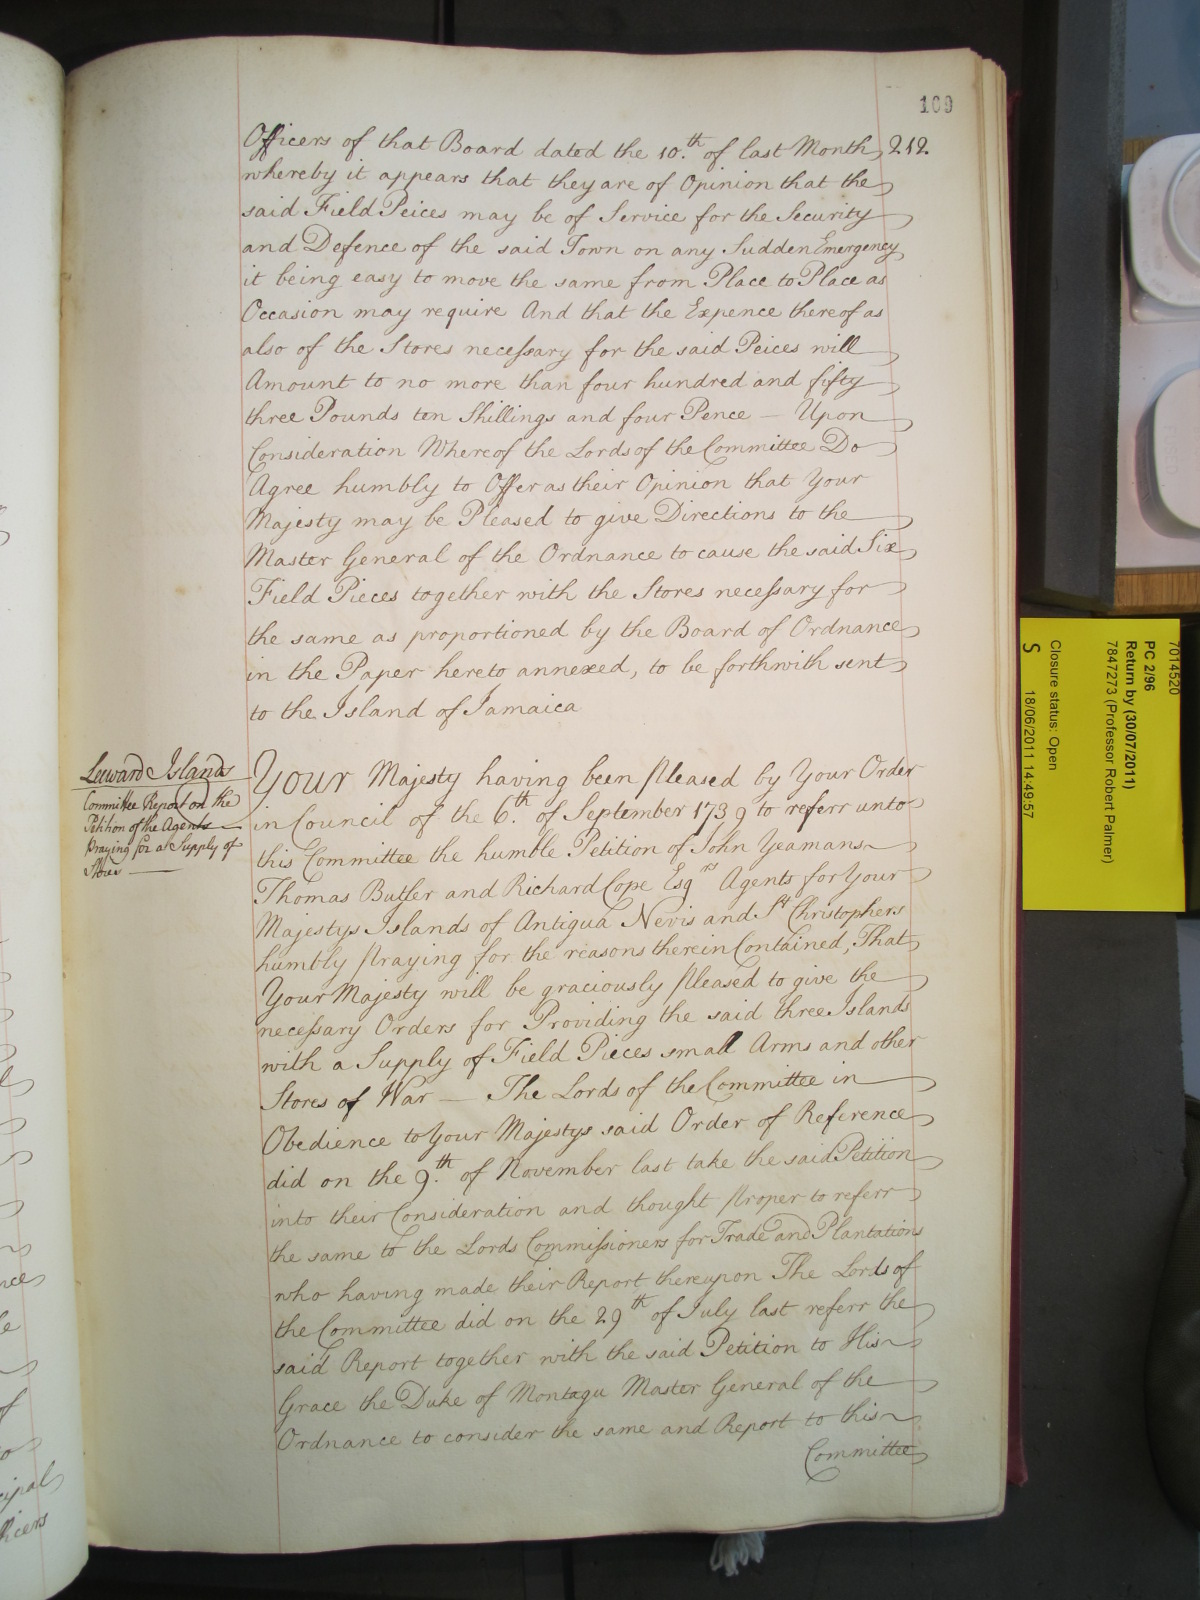 109
212.
Officers of that Board dated the 10.th of last Month
whereby it appears that they are of Opinion that the
said Field Peices may be of Service for the Security
and Defence of the said Town on any Sudden Emergency
it being easy to move the same from Place to Place as
Occasion may require And that the Expence thereof as
also of the Stores necessary for the said Peices will
Amount to no more than four hundred and fifty
three Pounds ten Shillings and four Pence — Upon
Consideration Whereof the Lords of the Committee Do
Agree humbly to Offer as their Opinion that Your
Majesty may be Pleased to give Directions to the
Master General of the Ordnance to cause the said Six
Field Pieces together with the Stores necessary for
the same as proportioned by the Board of Ordnance
in the Paper hereto annexed, to be forthwith sent
to the Island of Jamaica
Leeward Islands
Committee Report on the
Petition of the Agents
praying for a Supply of
Stores —
Your Majesty having been pleased by Your Order
in Council of the 6.th of September 1739 to referr unto
this Committee the humble Petition of John Yeamans
Thomas Butler and Richard Cope Esqrs Agents for Your
Majestys Islands of Antigua Nevis and St Christophers
humbly praying for the reasons therein Contained, That
Your Majesty will be graciously pleased to give the
necessary Orders for Providing the said three Islands
with a Supply of Field Pieces small Arms and other
Stores of War — The Lords of the Committee in
Obedience to Your Majestys said Order of Reference
did on the 9.th of November last take the said Petition
into their Consideration and thought proper to referr
the same to the Lords Commissioners for Trade and Plantations
who having made their Report thereupon The Lords of
the Committee did on the 29th of July last referr the
said Report together with the said Petition to His
Grace the Duke of Montagu Master General of the
Ordnance to consider the same and Report to this
Committee
7014520
PC 2/96
Return by (30/07/2011)
7847273 (Professor Robert Palmer)
Closure status: Open
S 18/06/2011 14:49:57